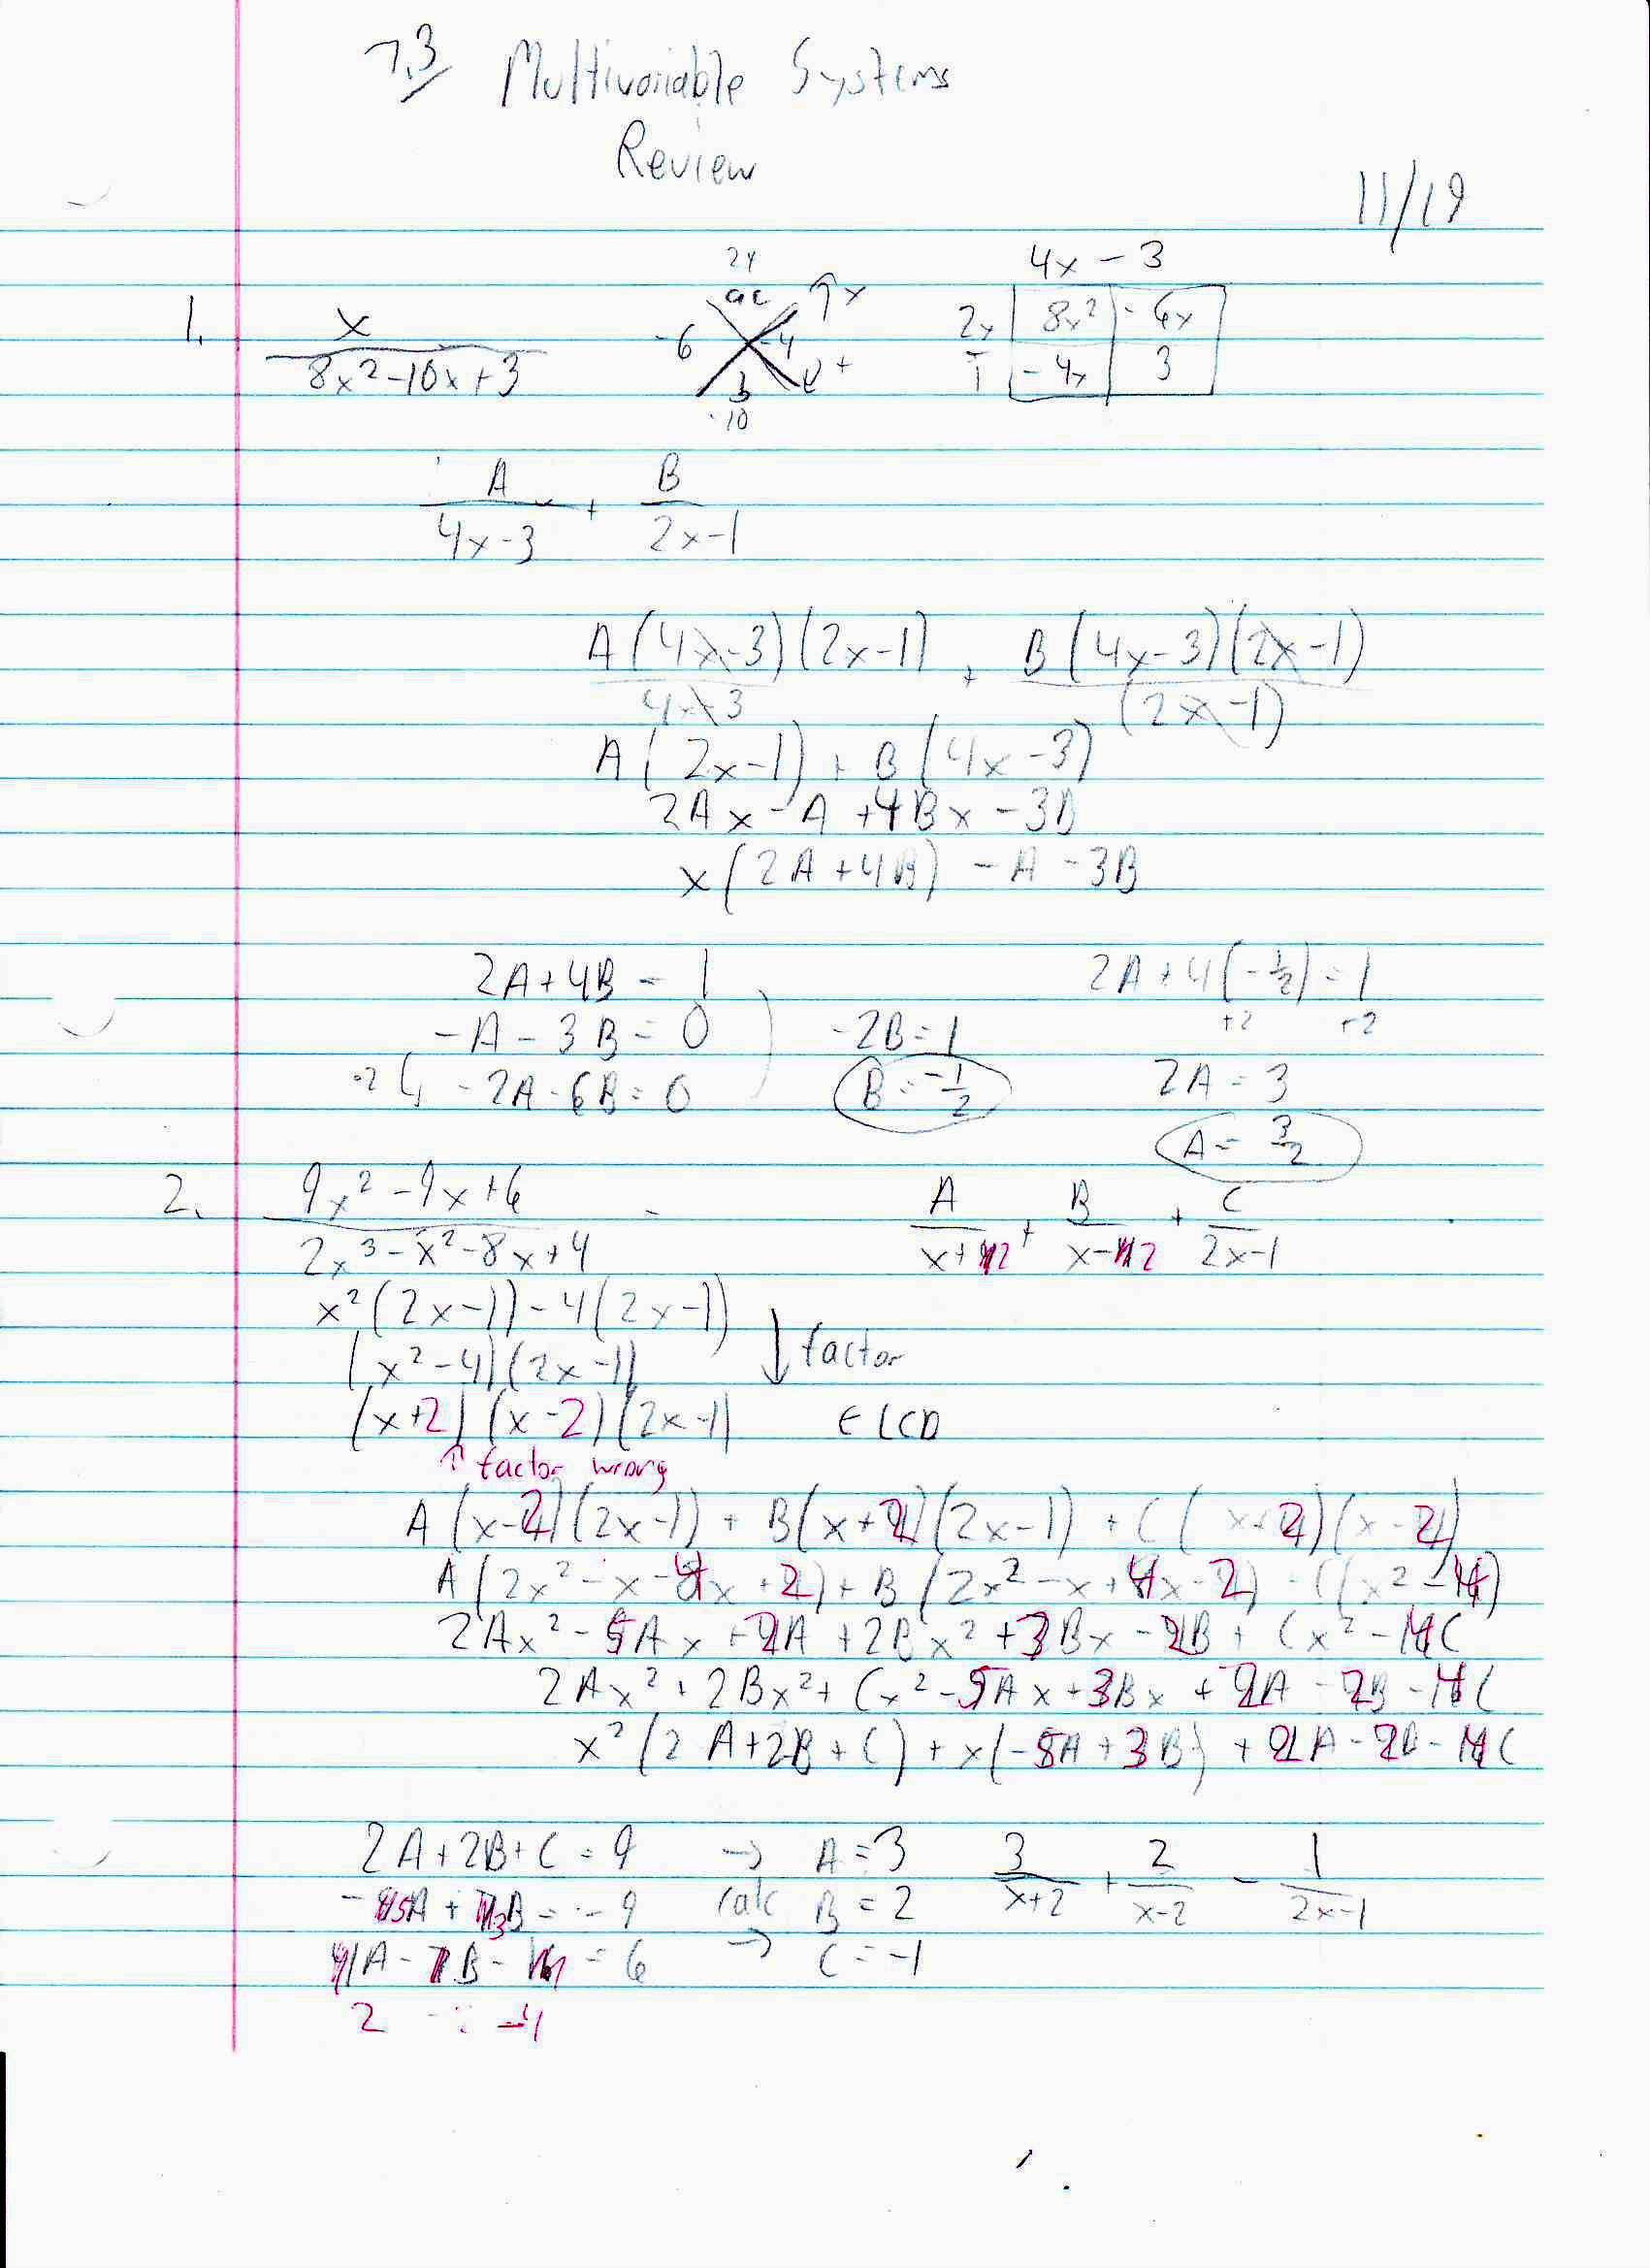 7.3 Multivariable Systems
Review
11/19
1. x / 8x² - 10x + 3
24
ac
-6 -4
b
-10
x
+
4x - 3
2x 8x² - 6x
-1 - 4x 3
A / 4x-3 + B / 2x-1
A(4x-3)(2x-1) / 4x-3 + B(4x-3)(2x-1) / (2x-1)
A(2x-1) + B(4x-3)
2Ax - A + 4Bx - 3B
x(2A+4B) - A - 3B
2A+4B = 1
-A - 3B = 0
·2 ↳ -2A - 6B = 0
-2B = 1
B = -1/2
2A + 4(-1/2) = 1
+2 +2
2A = 3
A = 3/2
2. 9x² - 9x + 6 / 2x³ - x² - 8x + 4 = A / x+2 + B / x-2 + C / 2x-1
x²(2x-1) - 4(2x-1)
(x²-4)(2x-1) ↓ factor
(x+2)(x-2)(2x-1) ← LCD
↑ factor wrong
A(x-2)(2x-1) + B(x+2)(2x-1) + C(x+2)(x-2)
A(2x² - x - 4x + 2) + B(2x² - x + 4x - 2) + C(x² - 4)
2Ax² - 5Ax + 2A + 2Bx² + 3Bx - 2B + Cx² - 4C
2Ax² + 2Bx² + Cx² - 5Ax + 3Bx + 2A - 2B - 4C
x²(2A+2B+C) + x(-5A+3B) + 2A - 2B - 4C
2A+2B+C = 9 → A = 3 3 / x+2 + 2 / x-2 - 1 / 2x-1
-5A + 3B = -9 calc B = 2
A - B - = 6 → C = -1
2 -4